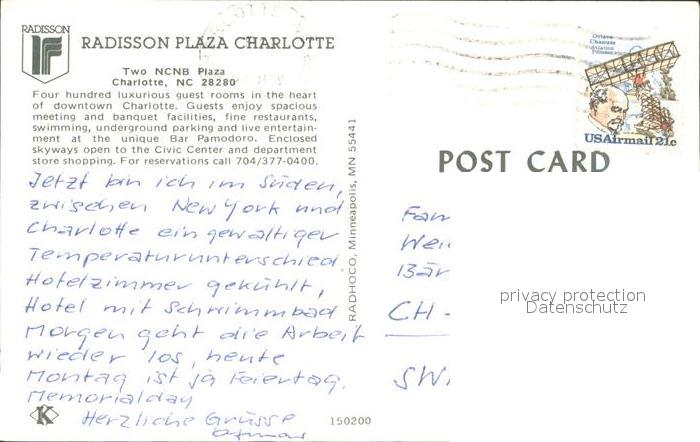 RADISSON
RADISSON PLAZA CHARLOTTE
Two NCNB Plaza
Charlotte, NC 28280
Four hundred luxurious guest rooms in the heart
of downtown Charlotte. Guests enjoy spacious
meeting and banquet facilities, fine restaurants,
swimming, underground parking and live entertain-
ment at the unique Bar Pamodoro. Enclosed
skyways open to the Civic Center and department
store shopping. For reservations call 704/377-0400.
Jetzt bin ich im Süden,
zwischen New York und
Charlotte ein gewaltiger
Temperaturunterschied.
Hotelzimmer gekühlt,
Hotel mit Schwimmbad
Morgen geht die Arbeit
wieder los, heute
Montag ist ja Feiertag.
Memorialday
Herzliche Grüsse
K
150200
RADHOCO, Minneapolis, MN 55441
Octave
Chanute
Aviation
Pioneer
USAirmail 21c
POST CARD
Fam
Wei
Bär
CH -
SWI
privacy protection
Datenschutz